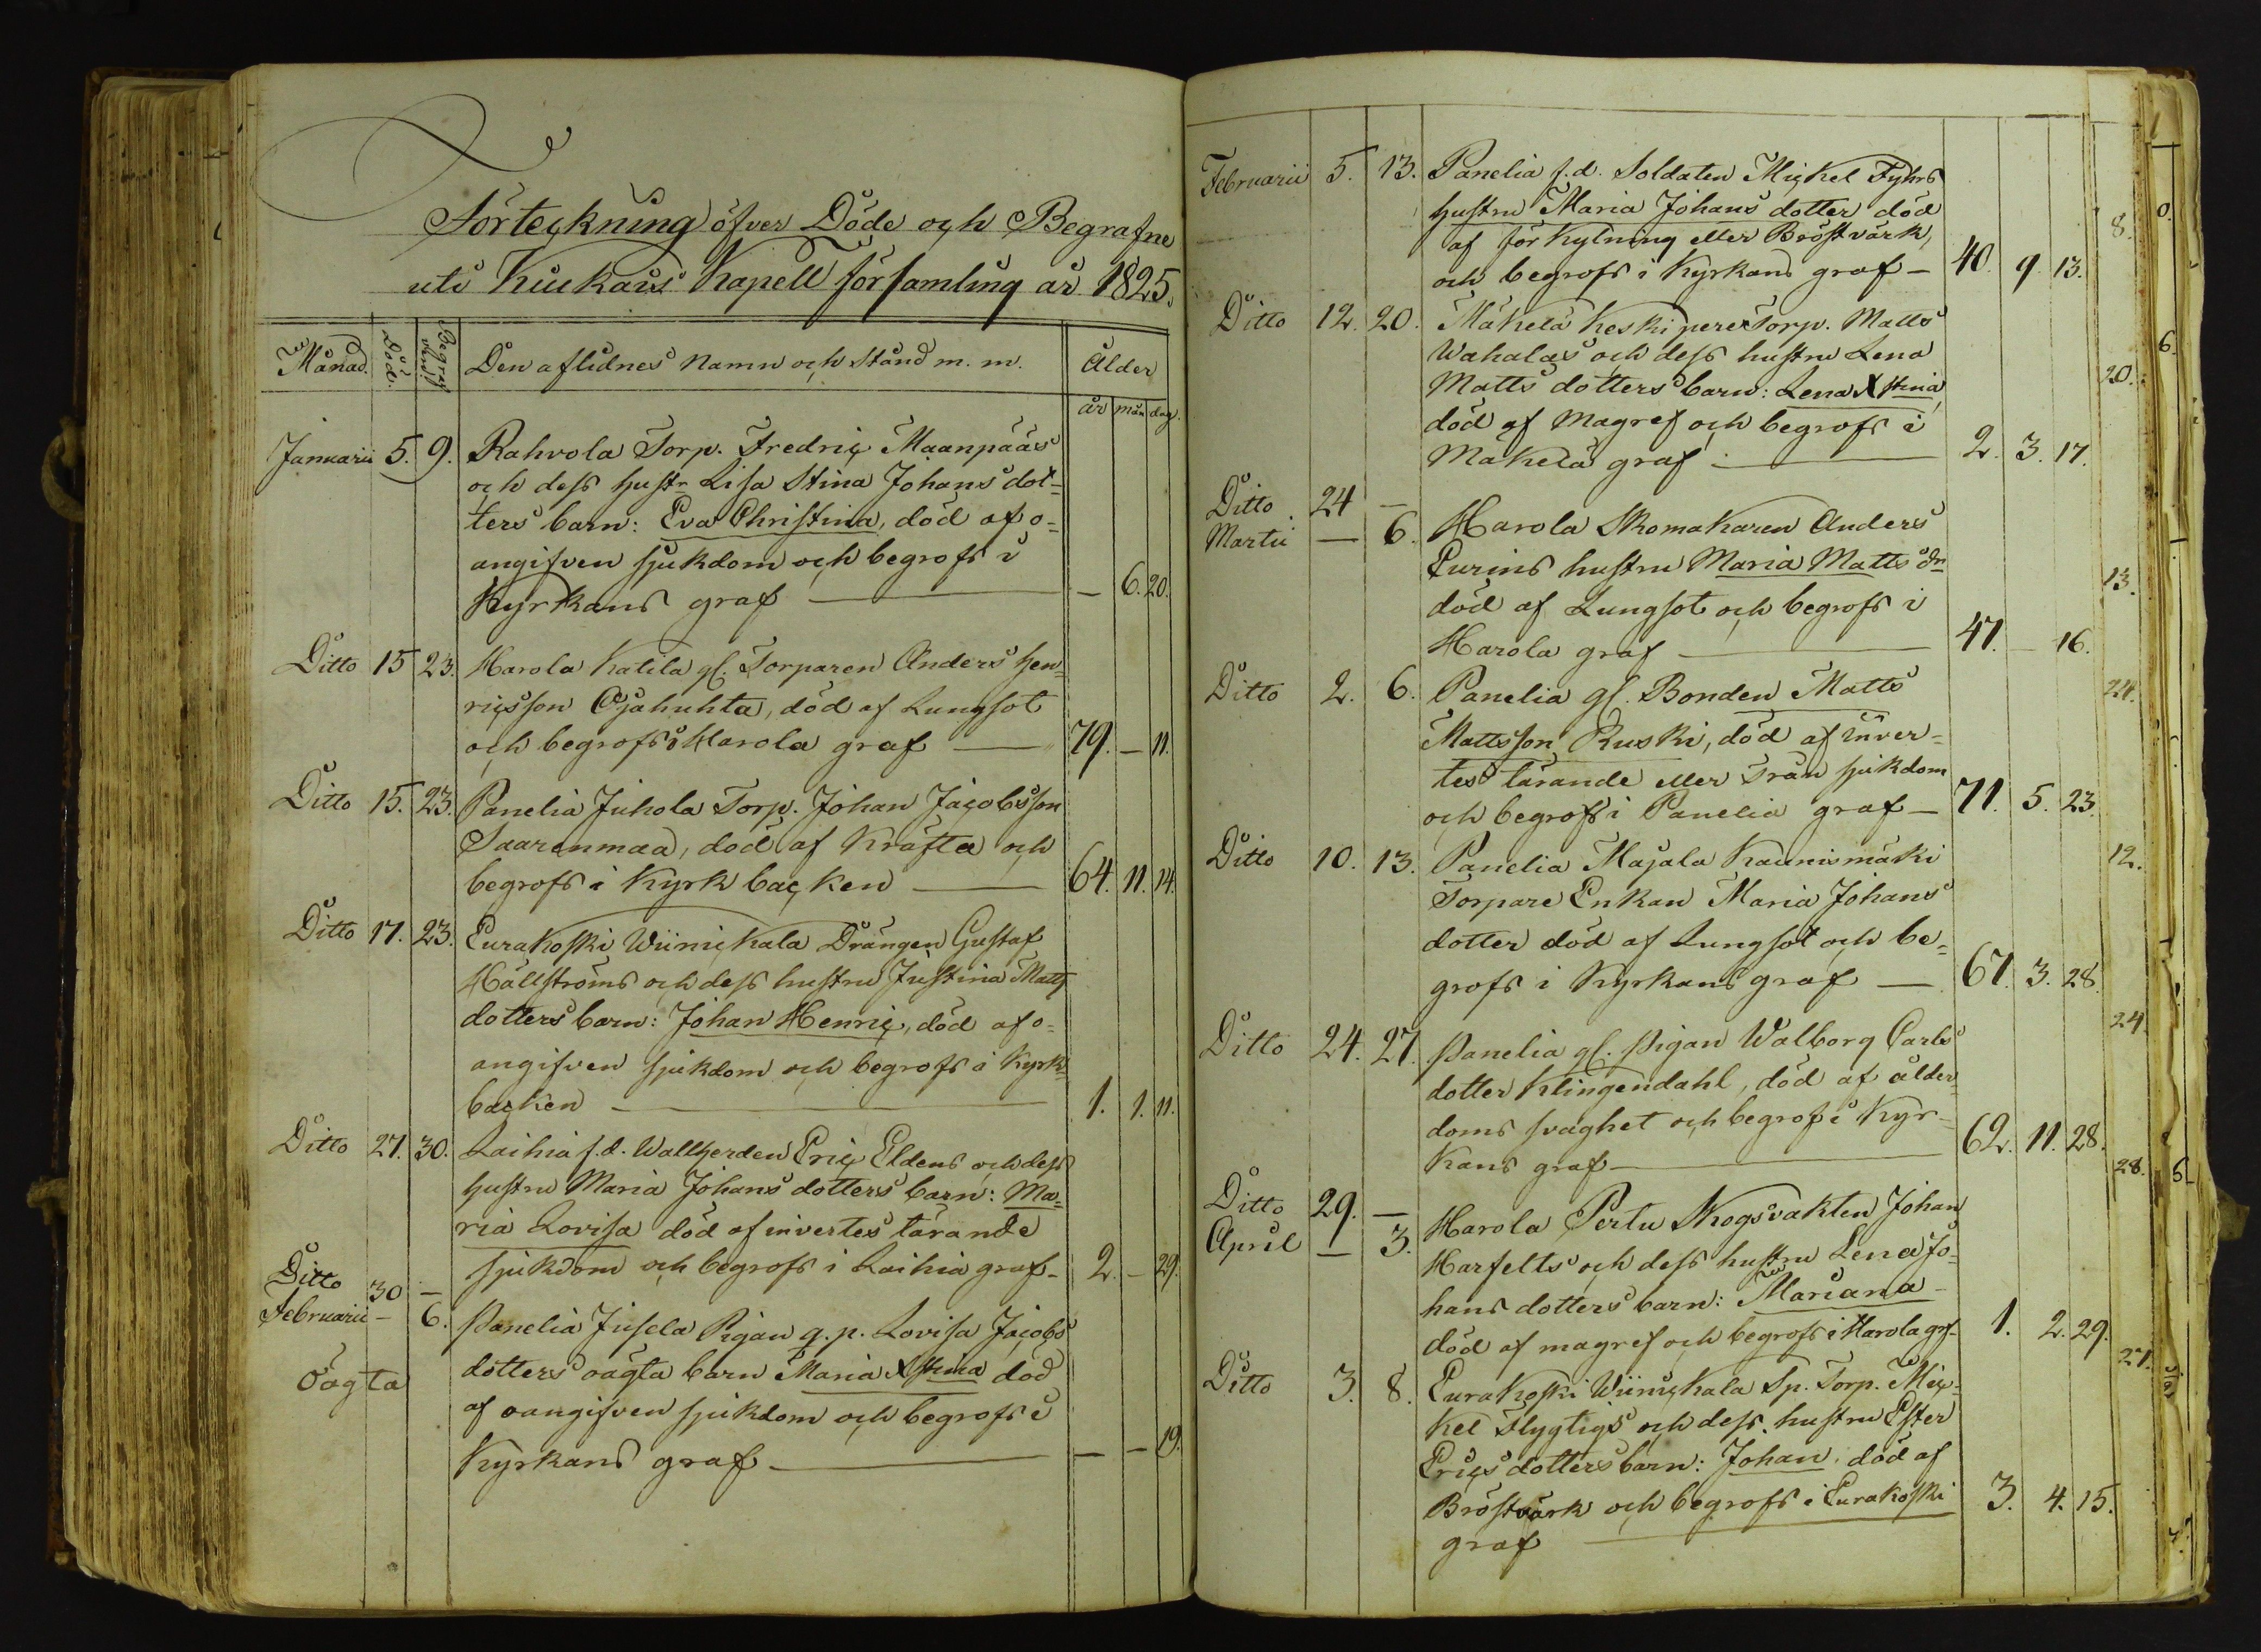 Förteckning öfver Döde och Begrafne
uti Kiukais Kapell församling år 1825.
Månad. Död. Begrafven. Den aflidnes Namn och Stånd m. m. Ålder
år mån dag.
Januarii 5. 9. Rahvola Torp. Fredric Maanpääs
och dess hustr Lisa Stina Johans dot=
ters barn: Eva Christina, död af o=
angifven sjukdom och begrofs i
Kyrkans graf — — 6. 20.
Ditto 15 23. Harola Katila gl. Torparen Anders Hen
ricsson Ojahuhta, död af Lungsot
och begrofs i Harola graf — 79. — 11.
Ditto 15. 23. Panelia Juhola Torp. Johan Jacobsson
Saarenmaa, död af Kräfta och
begrofs i Kyrk backen — 64. 11. 14.
Ditto 17. 23. Eurakoski Wiinickala Drängen Gustaf
Hällströms och dess hustru Justina Matts
dotters barn: Johan Henric, död af o=
angifven sjukdom och begrofs i Kyrk=
backen — 1. 1. 11.
Ditto 27. 30. Laihia f.d. Wallherden Eric Eldens och dess
hustru Maria Johans dotters barn: Ma=
ria Lovisa död af invertes tärande
sjukdom och begrofs i Laihia graf — 2. — 29.
Ditto 30 —
Februarii — 6. Panelia Jusela Pigan q. p. Lovisa Jacobs
Oägta dotters oägta barn Maria Xstina död
af oangifven sjukdom och begrofs i
Kyrkans graf — — — 19.
Februarii 5. 13. Panelia f.d. Soldaten Mickel Fyhrs
hustru Maria Johans dotter död
af förkylning eller Bröstvärk,
och begrofs i Kyrkans graf — 40. 9. 13.
Ditto 12. 20. Mäkelä Keskipere Torp. Matts
Wahalas och dess hustru Lena
Matts dotters barn: Lena Xstina,
död af Magref och begrofs i
Mäkelä graf — 2. 3. 17.
Ditto 24 —
Martii — 6. Harola Skomakaren Anders
Eurins hustru Maria Matts dr
död af Lungsot och begrofs i
Harola graf — 47. — 16.
Ditto 2. 6. Panelia gl. Bonden Matts
Mattsson Ruski, död af inver=
tes tärande eller Trån sjukdom
och begrofs i Panelia graf — 71. 5. 23.
Ditto 10. 13. Panelia Majala Kaunismäki
Torpare Enkan Maria Johans
dotter död af Lungsot och be=
grofs i Kyrkans graf — 67. 3. 28.
Ditto 24. 27. Panelia gl. Pigan Walborg Carls
dotter Klingendahl, död af ålder=
doms svaghet och begrofs i Kyr=
kans graf — 62. 11. 28.
Ditto 29. —
April — 3. Harola Pertu Skogsvakten Johan
Harfelts och dess hustru Lena Jo=
hans dotters barn: Mariana —
död af magref och begrofs i Harola grf — 1. 2. 29.
Ditto 3. 8. Eurakoski Wiinickala Sp. Torp. Mic=
kel Flygtigs och dess hustru Ester
Erics dotters barn: Johan, död af
Bröstvärk och begrofs i Eurakoski
graf — 3. 4. 15.
8.
20.
13.
24.
12.
24.
28.
27.
0.
6.
6